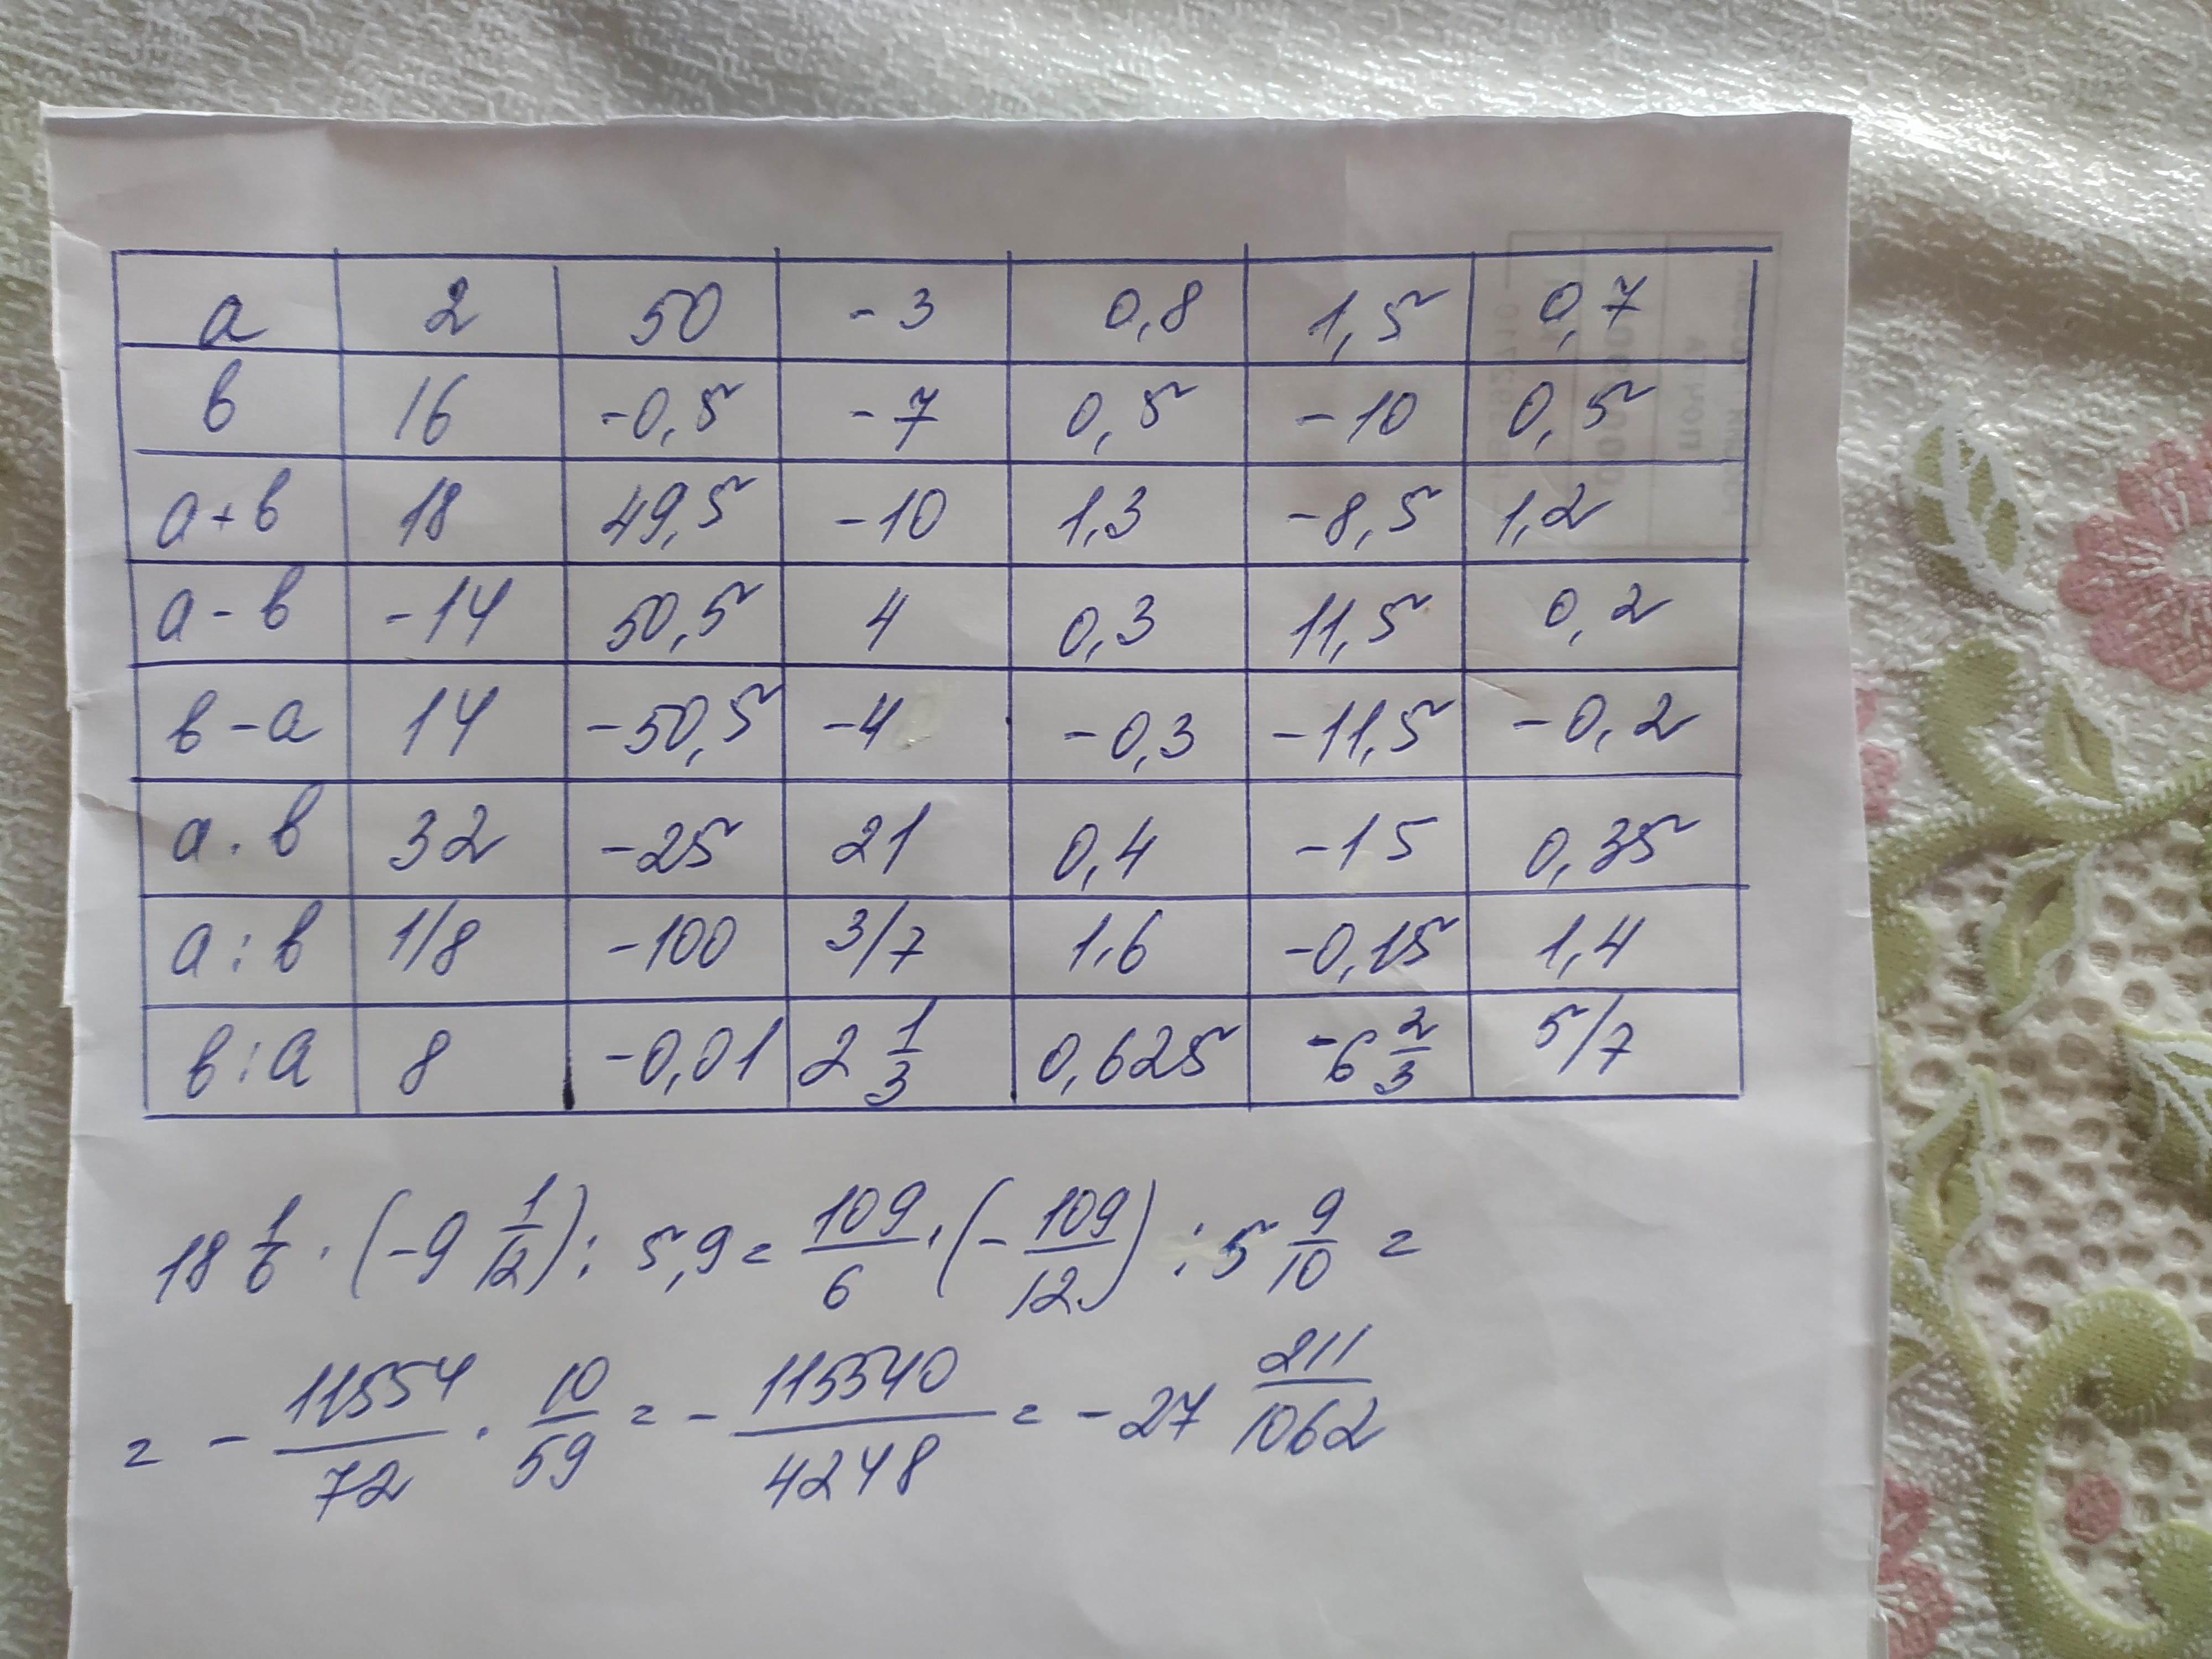 a 2 50 -3 0,8 1,5 0,7
в 16 -0,5 -7 0,5 -10 0,5
a+в 18 49,5 -10 1,3 -8,5 1,2
a-в -14 50,5 4 0,3 11,5 0,2
в-a 14 -50,5 -4 -0,3 -11,5 -0,2
a·в 32 -25 21 0,4 -15 0,35
a:в 1/8 -100 3/7 1,6 -0,15 1,4
в:a 8 -0,01 2 1/3 0,625 -6 2/3 5/7
18 1/6 · (-9 1/12) : 5,9 = 109/6 · (-109/12) : 5 9/10 =
= - 11554/72 · 10/59 = - 115540/4248 = -27 211/1062